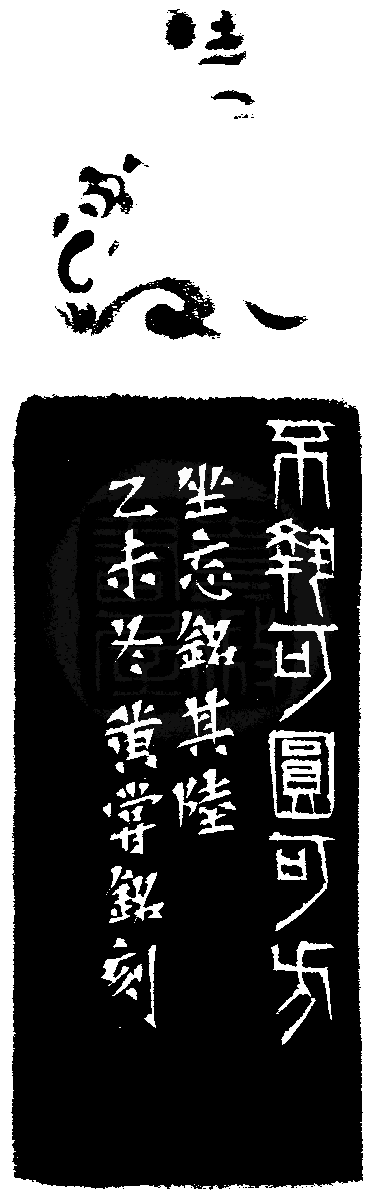 不執可圓可方
坐忘銘其陸
乙未冬黄嘗銘刻